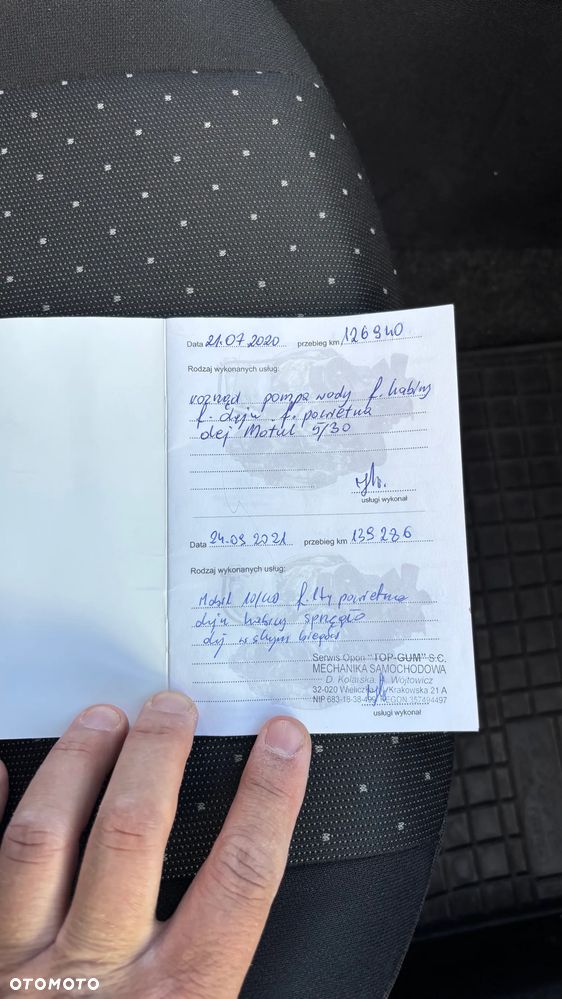 Data 21.07.2020 przebieg km 126940
Rodzaj wykonanych usług:
rozrząd pompa wody f. kabiny
f. oleju f. powietrza
olej Motul 5/30
usługi wykonał
Data 24.09 2021 przebieg km 139286
Rodzaj wykonanych usług:
Mobil 10/40 filtry powietrza
oleju kabiny sprzęgło
olej w skrzyni biegów
Serwis Opon "TOP-GUM" S.C.
MECHANIKA SAMOCHODOWA
D. Kolarska, Wojtowicz
32-020 Wieliczka, Krakowska 21 A
NIP 683-18-38-499 REGON 357494497
usługi wykonał
OTOMOTO